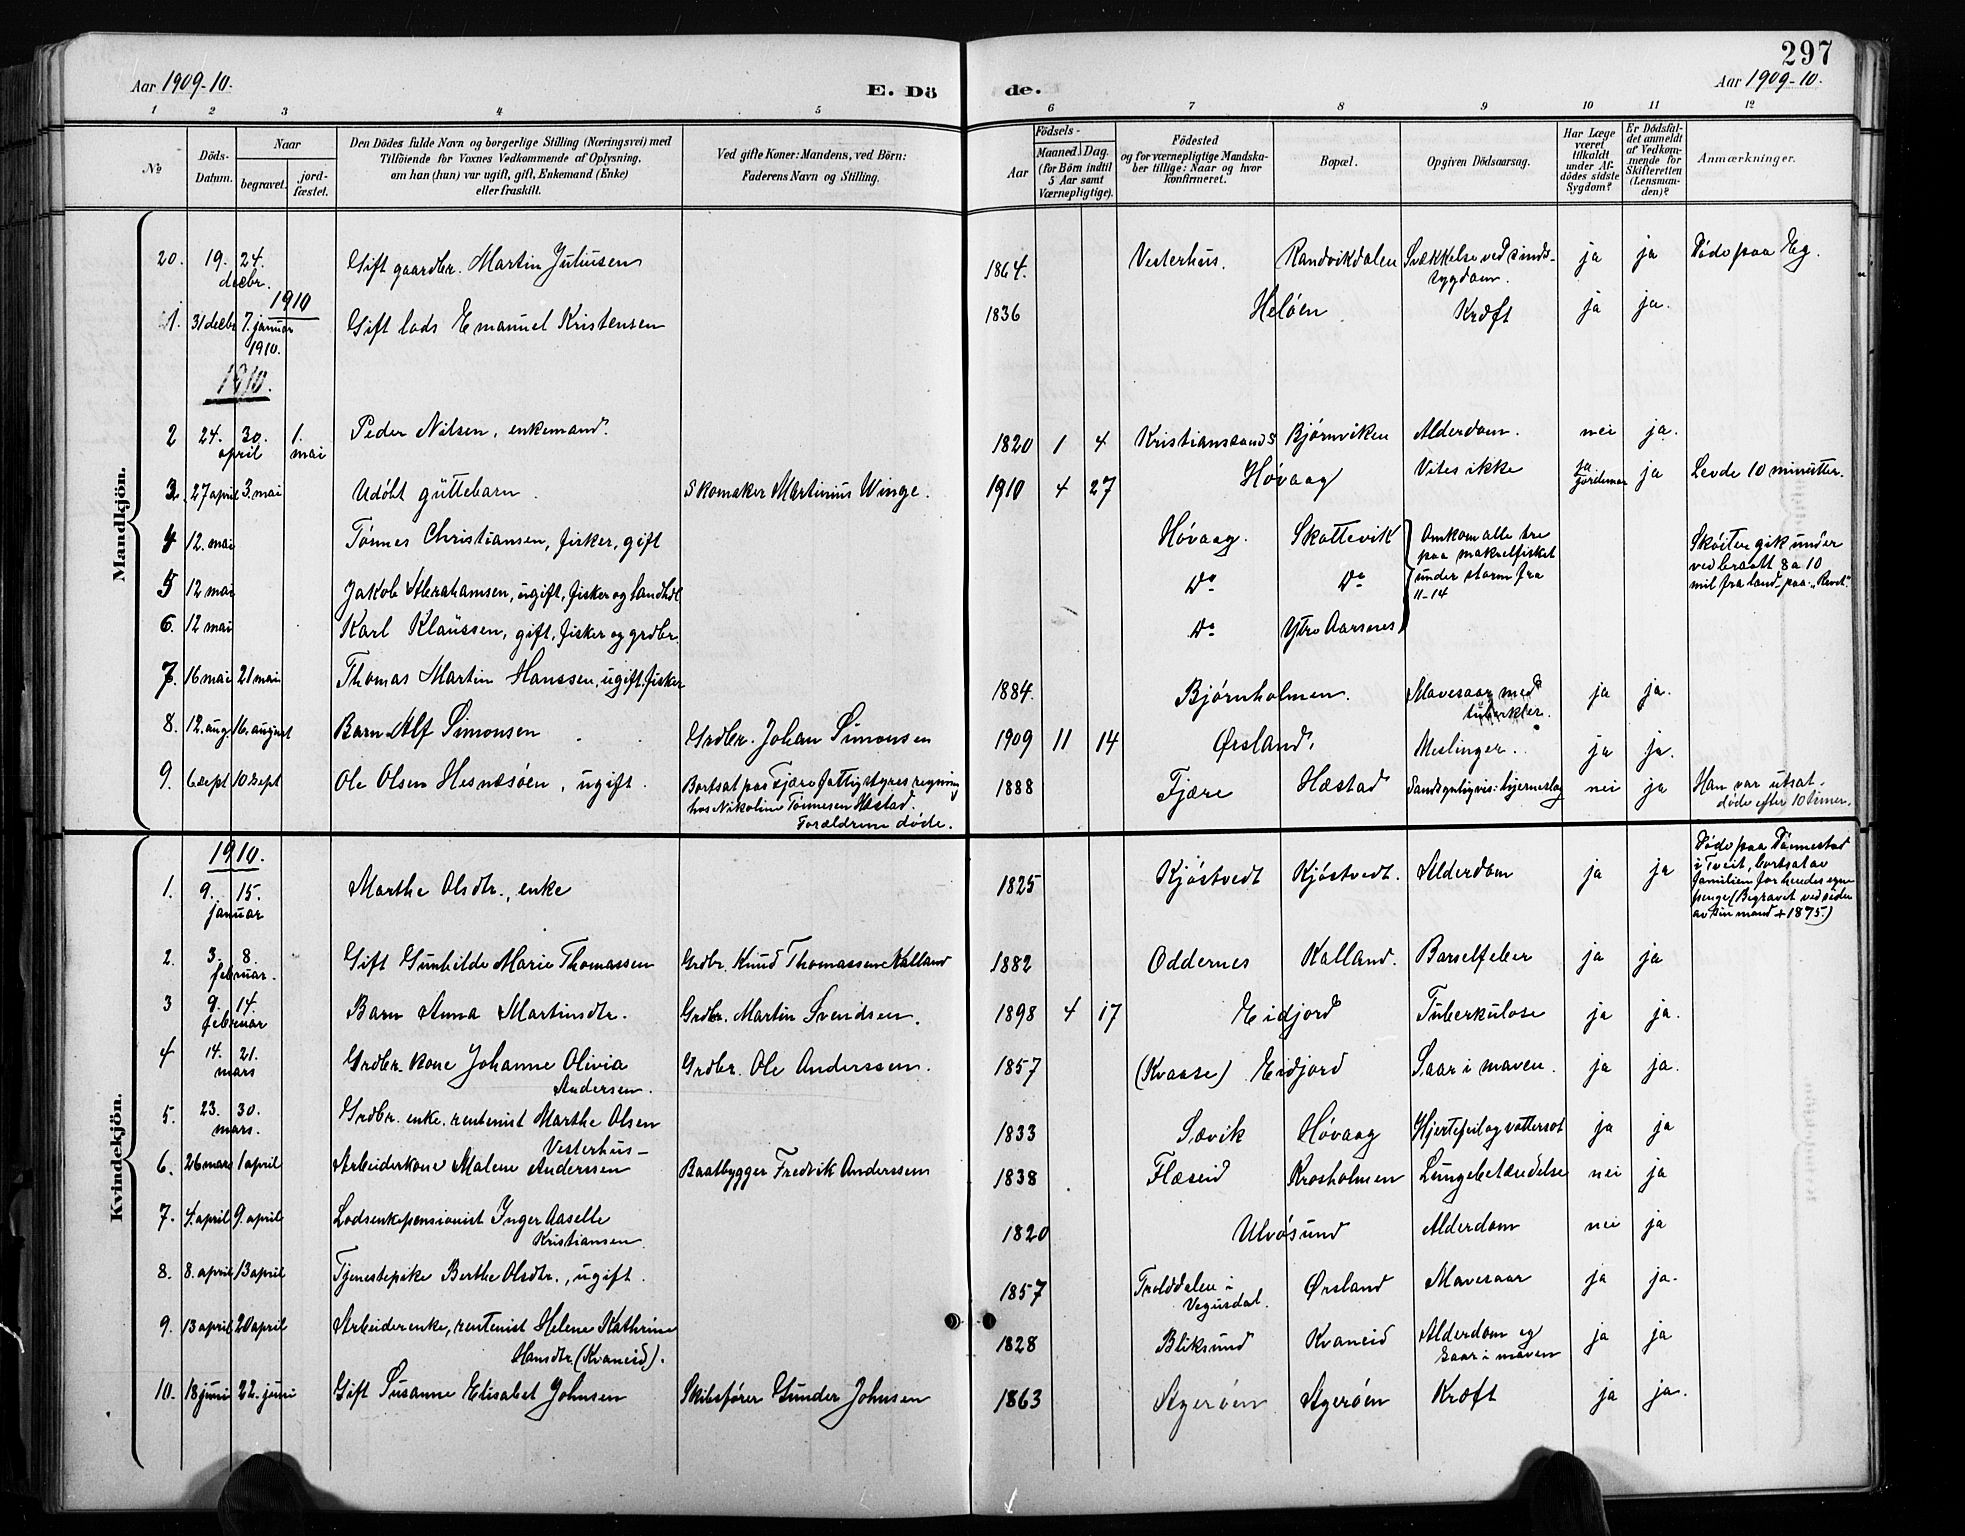 297
Aar 1909-10.
E. Dö de.
Aar 1909-10.
1 2 3 4 5 6 7 8 9 10 11 12
№
Döds-Datum.
Naar
begravet.
jord-fæstet.
Den Dödes fulde Navn og borgerlige Stilling (Næringsvei) med
Tilföiende for Voxnes Vedkommende af Oplysning,
om han (hun) var ugift, gift, Enkemand (Enke)
eller fraskilt.
Ved gifte Koner: Mandens, ved Börn:
Faderens Navn og Stilling.
Födsels-
Aar
Maaned. Dag.
(for Börn indtil
5 Aar samt
Værnepligtige).
Födested
og for værnepligtige Mandska-
ber tillige: Naar og hvor
konfirmeret.
Bopæl.
Opgiven Dödsaarsag.
Har Læge
været
tilkaldt
under Af-
dödes sidste
Sygdom?
Er Dödsfal-
det anmeldt
af Vedkom-
mende for
Skifteretten
(Lensman-
den)?
Anmærkninger.
Mandkjön.
20. 19. 24. decbr. Gift gaardbr. Martin Juliusen 1864. Vesterhus. Randvikdalen Svækkelse ved sinds-
sygdom. ja ja Døde paa Eg.
1910
1. 31 decbr 7. januar 1910. Gift lods Emanuel Kristensen 1836 Heløen Kræft ja ja.
1910.
2 24. 30. april 1. mai Peder Nilsen, enkemand. 1820 1 4 Kristianssands Bjørnviken Alderdom. nei ja.
3. 27 april 3. mai Udøbt guttebarn. Skomaker Martinius Winge. 1910 4 27 Høvaag Vites ikke ja
jordemor ja Levde 10 minutter.
4 12. mai Tønnes Christiansen, fisker, gift Høvaag. Skottevik Omkom alle tre
paa makrelfisket
under storm fra
11-14 Skøiten gik under
ved braatt 8 a 10
mil fra land paa "Revet"
5 12 mai Jakob Abrahamsen, ugift, fisker og landhdl Do Do
6. 12 mai Karl Klaussen, gift, fisker og grdbr. Do Ytre Aarsnes
7. 16 mai 21 mai Thomas Martin Hanssen, ugift, fisker 1884. Bjørnholmen. Mavesaar med
tuberkler. ja ja.
8. 12. aug. 16. august Barn Alf Simonsen Grdbr. Johan Simonsen 1909 11 14 Ørsland. Meslinger. ja ja.
9. 6 sept 10 sept Ole Olsen Hesnæsøen, ugift. Bortsat paa Fjære fattigstyres regning
hos Nikoline Tønnesen Hæstad.
Forældrene døde. 1888 Fjære Hæstad Sandsynligvis: hjerneslag nei ja Han var utsat.
døde efter 10 timer.
Kvindekjön.
1910.
1. 9. 15. januar Marthe Olsdtr., enke 1825 Kjøstvedt Kjøstvedt. Alderdom ja ja Døde paa Dønnestad
i Tveit, bortsat av
familien for hendes egne
penge (Begravet ved siden
av sin mand + 1875.)
2. 3. 8. februar. Gift Gunhilde Marie Thomassen Grdbr. Knud Thomassen Kalland 1882 Oddernes Kalland. Barselfeber ja ja
3 9. 14. februar Barn Anna Martinsdtr. Grdbr. Martin Svendsen. 1898 4 17 Eidjord Tuberkulose ja ja.
4 14. 21. mars Grdbr. kone Johanne Olivia
Andersen. Grdbr. Ole Anderssen. 1857 (Kvaase) Eidjord Saar i maven. ja ja.
5. 23. 30. mars. Grdbr. enke. rentenist Marthe Olsen
Vesterhus- 1833 Sævik Høvaag Hjertefeil og vattersot ja ja
6. 26 mars 1 april Arbeiderkone Malene Anderssen Baatbygger Fredrik Anderssen 1838 Flæseid Krosholmen Lungebetændelse nei ja
7. 4. april 9. april Lodsenkepensionist Inger Aaselle
Kristiansen. 1820 Ulvøsund Alderdom nei ja
8. 8. april 13 april Tjenestepike Berthe Olsdtr., ugift. 1857 Trolddalen i
Vegusdal. Ørsland Mavesaar ja ja.
9. 13 april 20 april Arbeiderenke, rentenist Helene Kathrine
Hansdtr. (Kvaneid). 1828 Bliksund Kvaneid Alderdom og
saar i maven ja ja
10. 18 juni 22. juni Gift Susanne Elisabet Johnsen Skibsfører Gunder Johnsen 1863 Agerøen Agerøen Kræft ja ja.